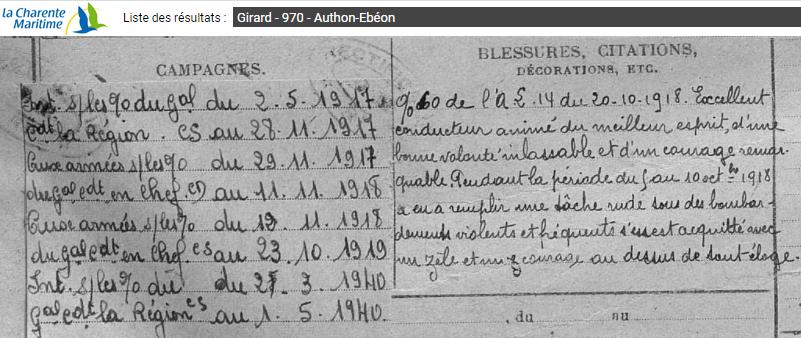 la Charente
Maritime
Liste des résultats : Girard - 970 - Authon-Ebéon
CAMPAGNES.
Int. s/les %o du gal du 2.5.1917
cdt la Région. CS au 28.11.1917
Aux armées s/les %o du 29.11.1917
du gal cdt en chef. CD au 11.11.1918
Aux armées s/les %o du 12.11.1918
du gal cdt en chef. CS au 23.10.1919
Int. s/les %o du du 27.3.1940
gal cdt la Région CS au 1.5.1940.
BLESSURES, CITATIONS,
DÉCORATIONS, ETC.
%o 60 de l'A.E. 14 du 20-10-1918. Excellent
conducteur animé du meilleur esprit, d'une
bonne volonté inlassable et d'un courage remar-
quable. Pendant la période du 5 au 10 octbre 1918
a eu a remplir une tâche rude sous des bombar-
dements violents et fréquents s'en est acquitté avec
un zèle et un courage au dessus de tout éloge.
du au